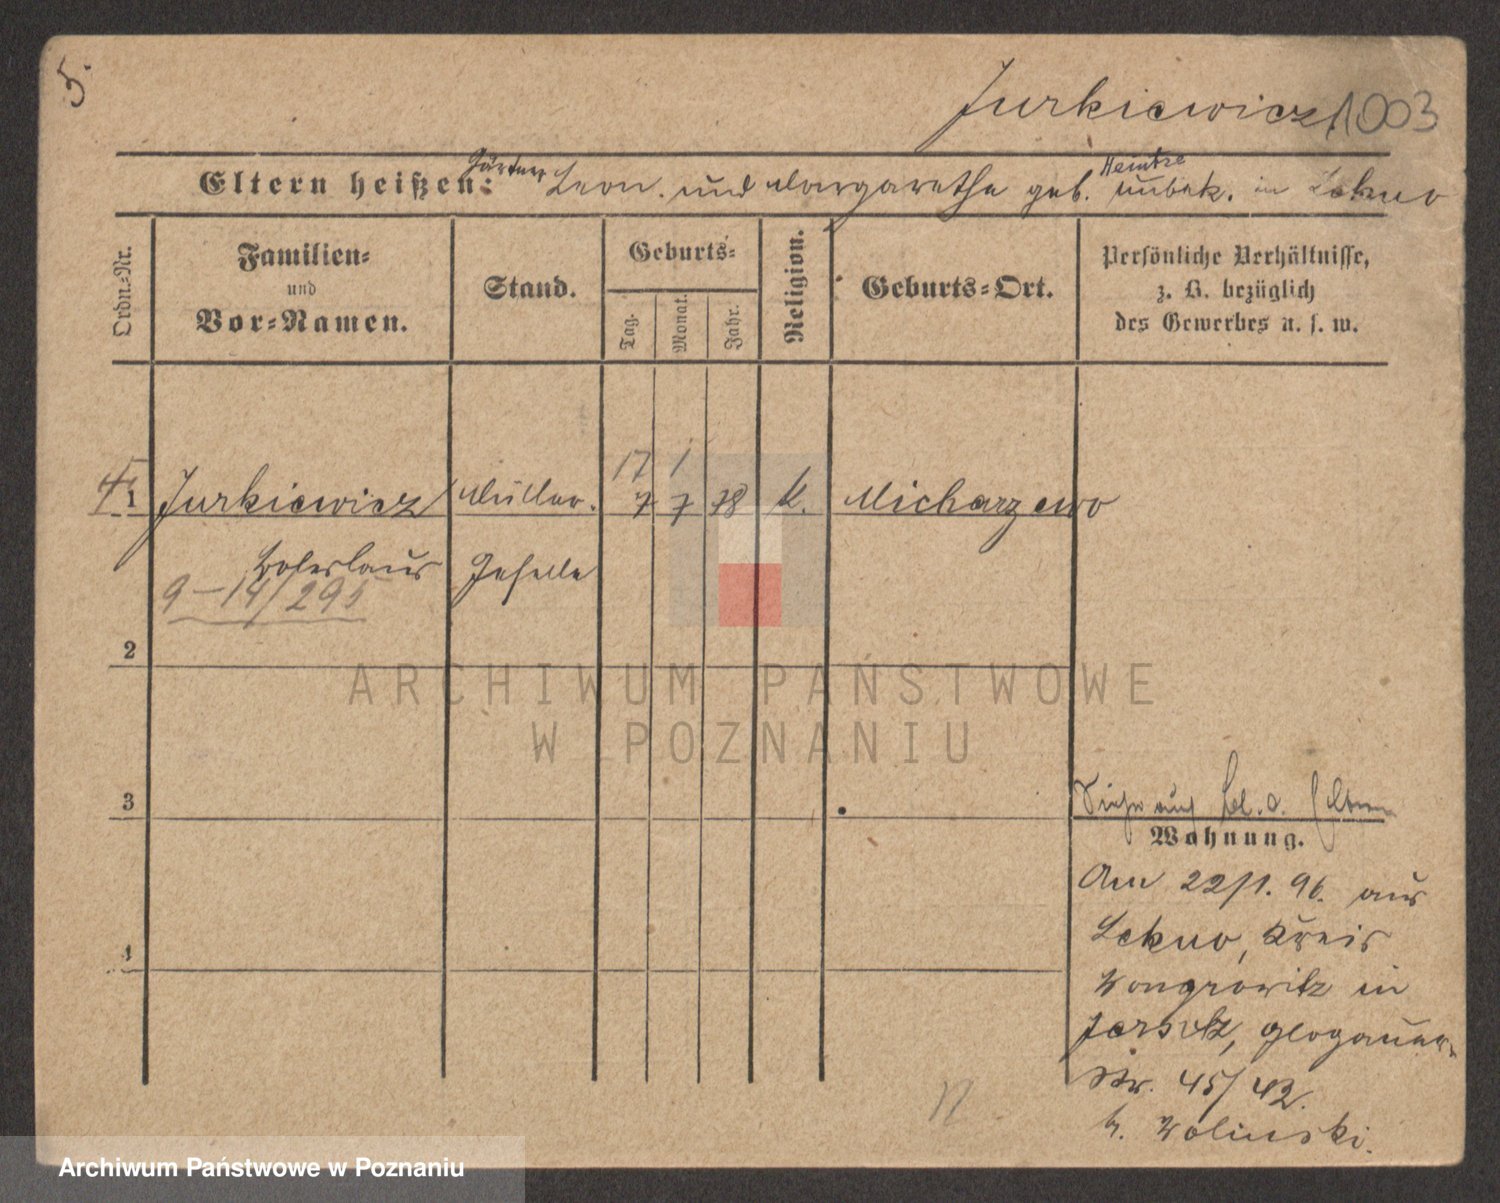 5.
Jurkiewicz 1003
Eltern heißen: Gärtner Leon. und Margarethe geb. unbek. Heintze in Lekno
Ordn.-Nr.
Familien-
und
Vor-Namen.
Stand.
Geburts-
Tag.
Monat.
Jahr.
Religion.
Geburts-Ort.
Persönliche Verhältnisse,
z. B. bezüglich
des Gewerbes u. s. w.
17 1
1 Jurkiewicz Müller. 7 7 78 k. Micharzewo
Boleslaus Geselle
9-14/295
2
3
Siehe auch
Wohnung.
Am 22/1. 96. aus
Lekno, Kreis
Wongrowitz in
Jersitz, Glogauer-
Str. 45/42.
b. Wolinski.
4
ARCHIWUM PAŃSTWOWE
W POZNANIU
Archiwum Państwowe w Poznaniu